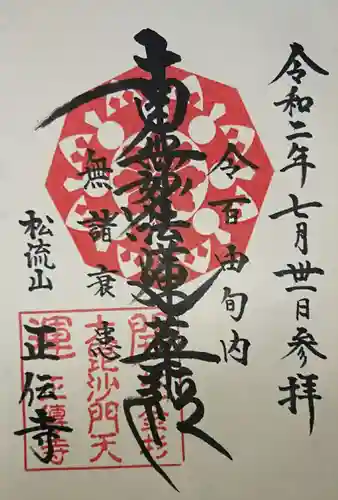 令和二年七月卅一日参拝
令百由旬内
南無妙法蓮華経
無諸衰患
松流山
正伝寺
開運
大毘沙門天
芝金杉
正傳寺